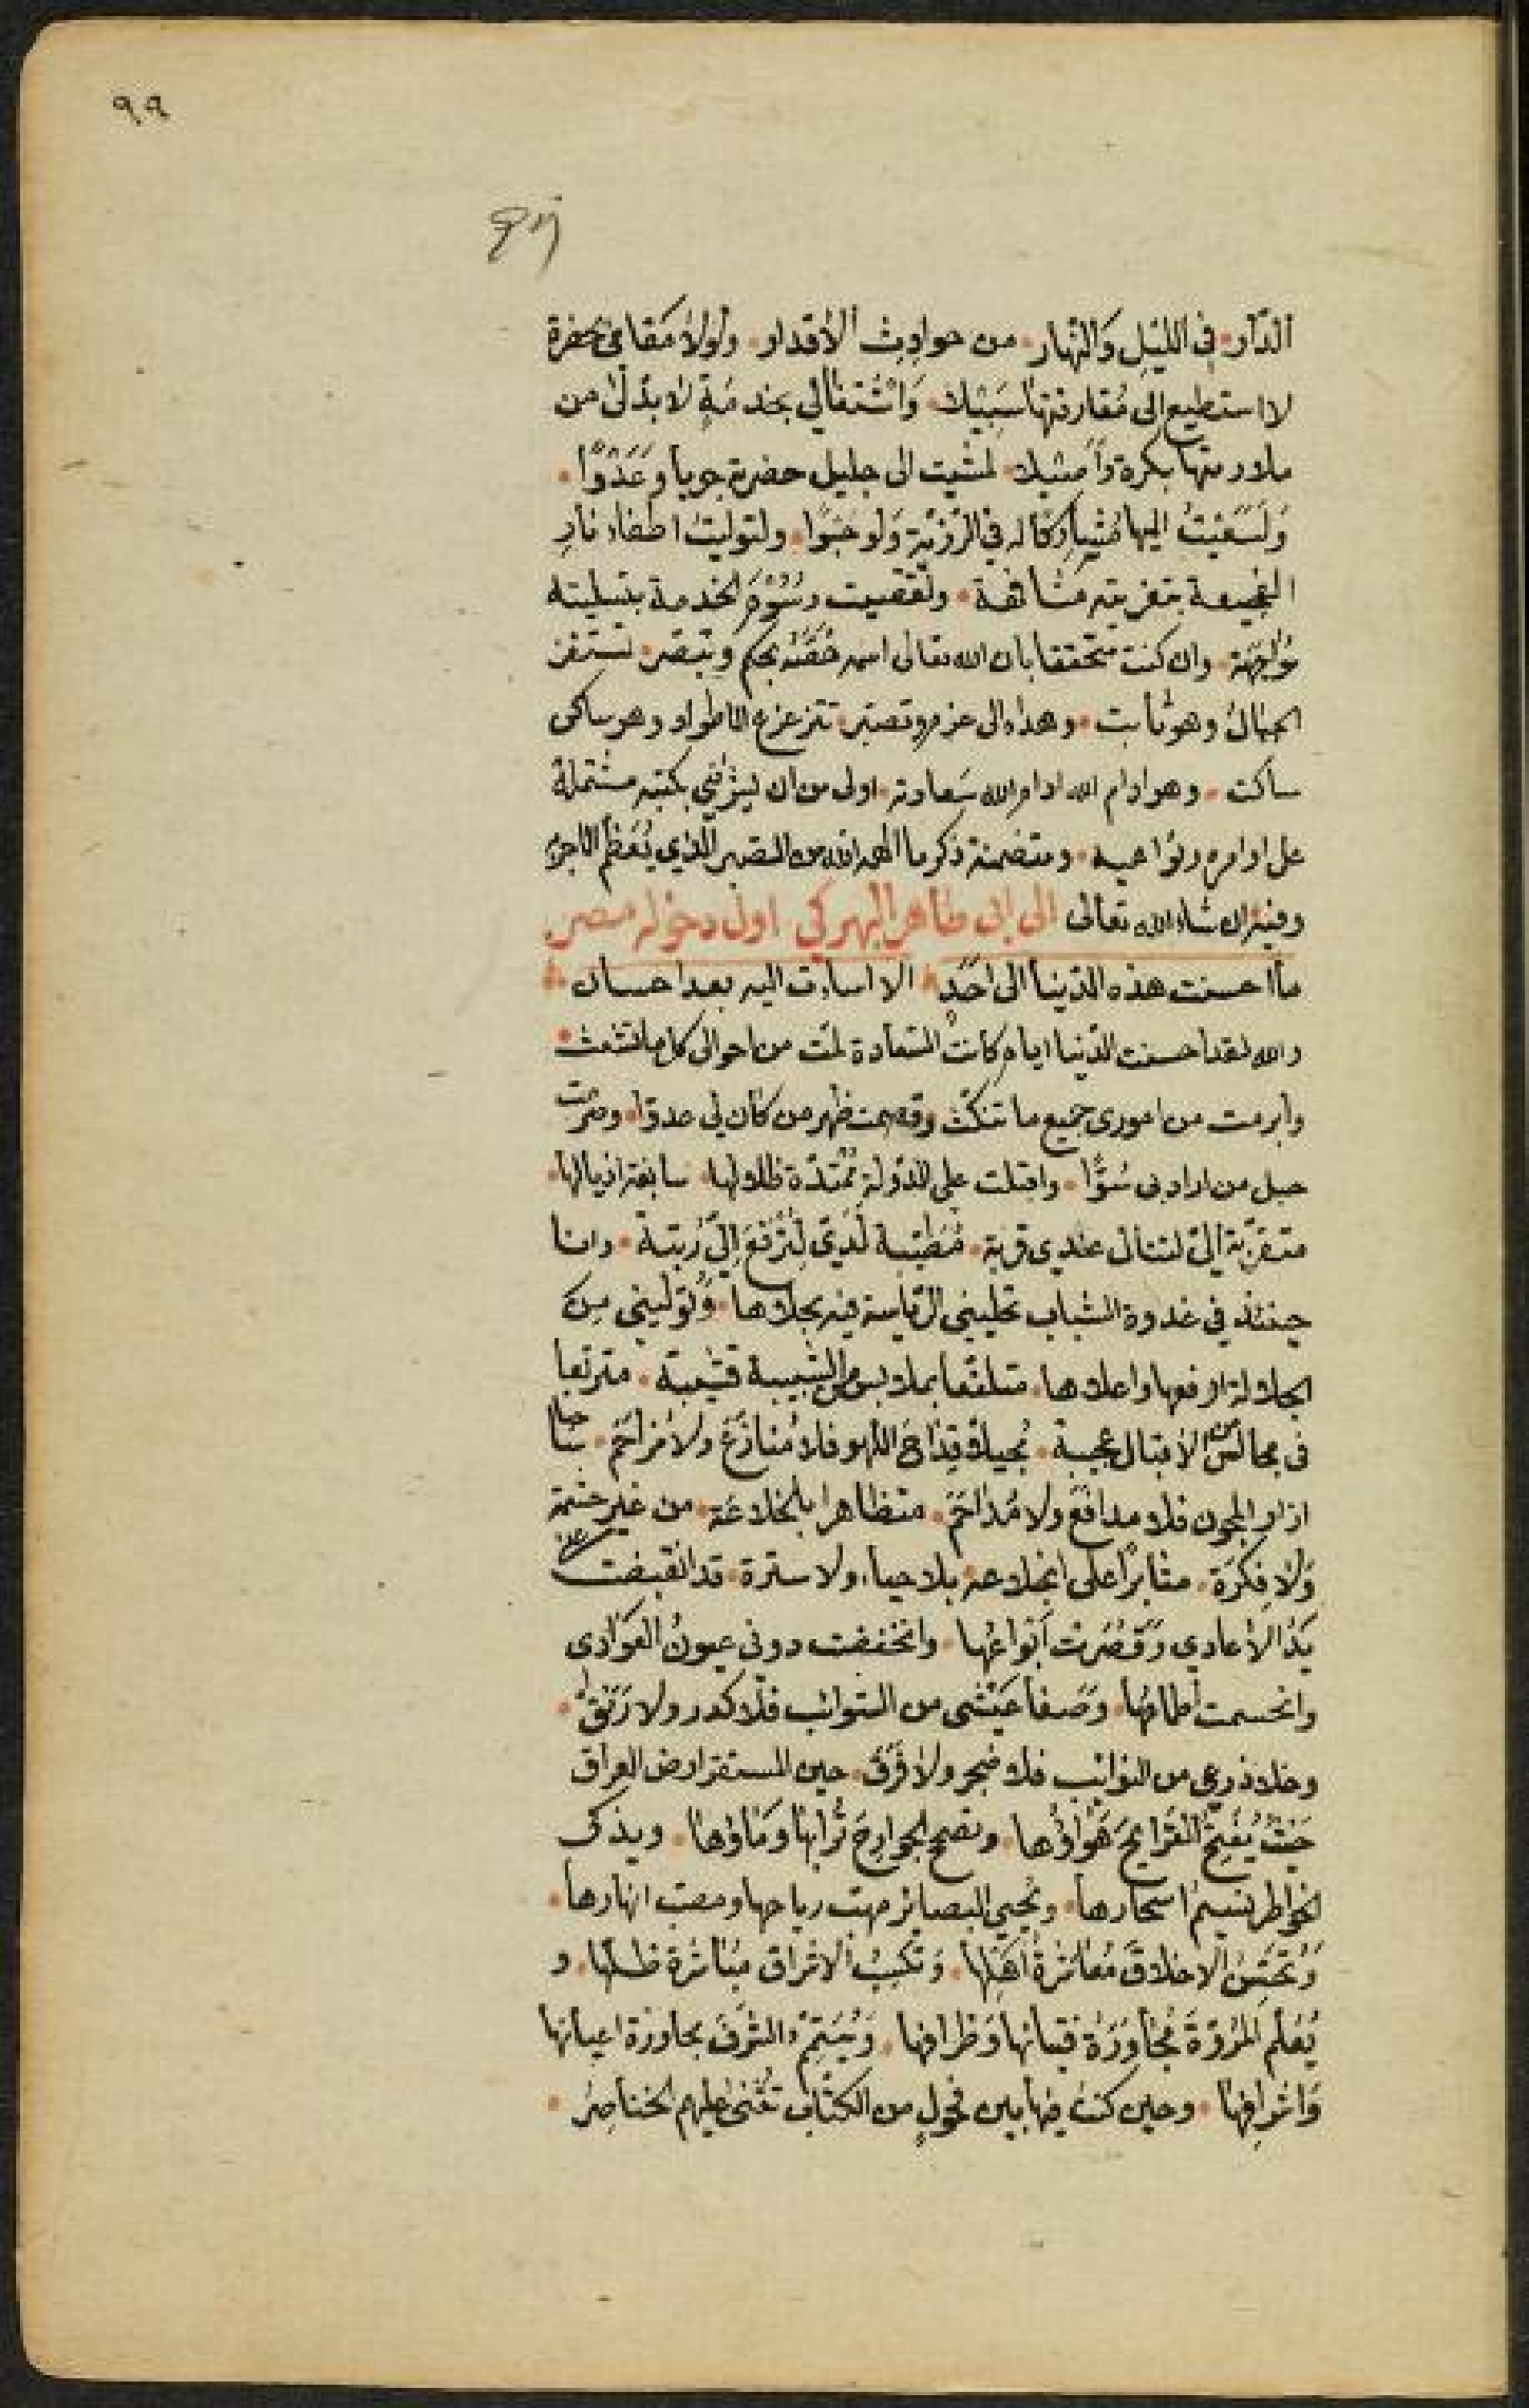 ٩٩
الدّار في الليل والنهار من حوادث الأقدار ولولا مقامي بحضرة
لا استطيع الى مُفارقتها سبيلا واشتغالي بخدمةٍ لا بدّ لى من
ملازمتها بكرة وأصيلا لمشيت الى جليل حضرته جريا وعَدْوًا
وَلَسَعَيْتُ اليها مشاركا له في الرّزيّة ولو حَبْوًا ولتوليت اطفاء نار
الفجيعة بتعزيته مشافهة ولقضيت رسُومَ الخدمة بتسليته
مُواجَهة وان كنت متحققا بان الله تعالى اسمه خصّه بحكم وتبصر تستفز
الجبالُ وهو ثابت وهداه الى عزم وتصبّر تتزعزع الاطواد وهو ساكن
ساكت وهو ادام الله سَعادته اولى من ان يشرّفني بكتبه مشتملة
على اوامره ونواهيه ومتضمنة ذكر ما الهمه الله من الصبر الذي يُعَظّم الاجر
وفيه ان شاء الله تعالى الى ابي طاهر البهركي اول دخوله مصر
ما احسنت هذه الدّنيا الى احَدٍ الا اساءت اليه بعد احسان
والله لقد احسنت الدّنيا ايام كانت السّعادة لمّت من احوالى كل ما تشعث
وابرمت من امورى جميع ما تنكّث وقصمت ظهر من كان لي عدوّا وصرمت
حبل من اراد بى سُوّءًا واقبلت علي الدّولة مُمْتدّة ظلالها سابغة اذيالها
متقرّبة اليّ لتنال عندي قربة لَدَيّ لِتُرْفَعَ إليّ رُتبة وانا
حينئذ في غدوة الشباب تحليني الرّياسة فيه بحلاها وتُوليني من
الجلالة ارفعها واعلاها متلفّعا بملابس من الشبيبة قشيبة متربّعا
فى مجالس من الاقبال عجيبة مُجيلا قِدَاحَ اللهو فلا مُنازعَ ولا مُزاحم ساحبا
ازار المجون فلا مدافع ولا متظاهرا بالخلاعة من غير حشمة
وَلا فِكرَة مثابرًا على الخلاعة بلا حياء ولا سترة قد انقبضت عنى
يَدُ الأعادي وقصُرت أبواعُها وانخفضت دونى عيونُ العَوَادى
وانحسمت اطماعُها وَصَفا عَيْشى من الشوائب فلا كدر ولا رَنَقَ
وخلا ذرعى من النوائب فلا ضجر ولا فَرَق حين المستقر ارض العراق
حَيْثُ يُفتِحُ القَرايحَ هَواؤُها وتصح الجوارحَ تُرابُها وَمَاؤها ويذكى
الخواطر نسيمُ اسحارها وتُحيي البصائر مهبّ رياحها ومصبّ انهارها
وَتُحَسِّنُ الاخلاقَ مُعَاشَرةُ أهلِها وَتكسِبُ الاشراق مُباشرة ظلّها و
يُعَلّم المُروّة مُجاوَرَة فتيانها وَظرافها وَيُتَمِّمُ الشّرَفَ مجاورة اعيانها
وَاشرافِها وحين كنت فيها بين فحولٍ من الكتّاب تُثنى عليهم الخناصِرُ